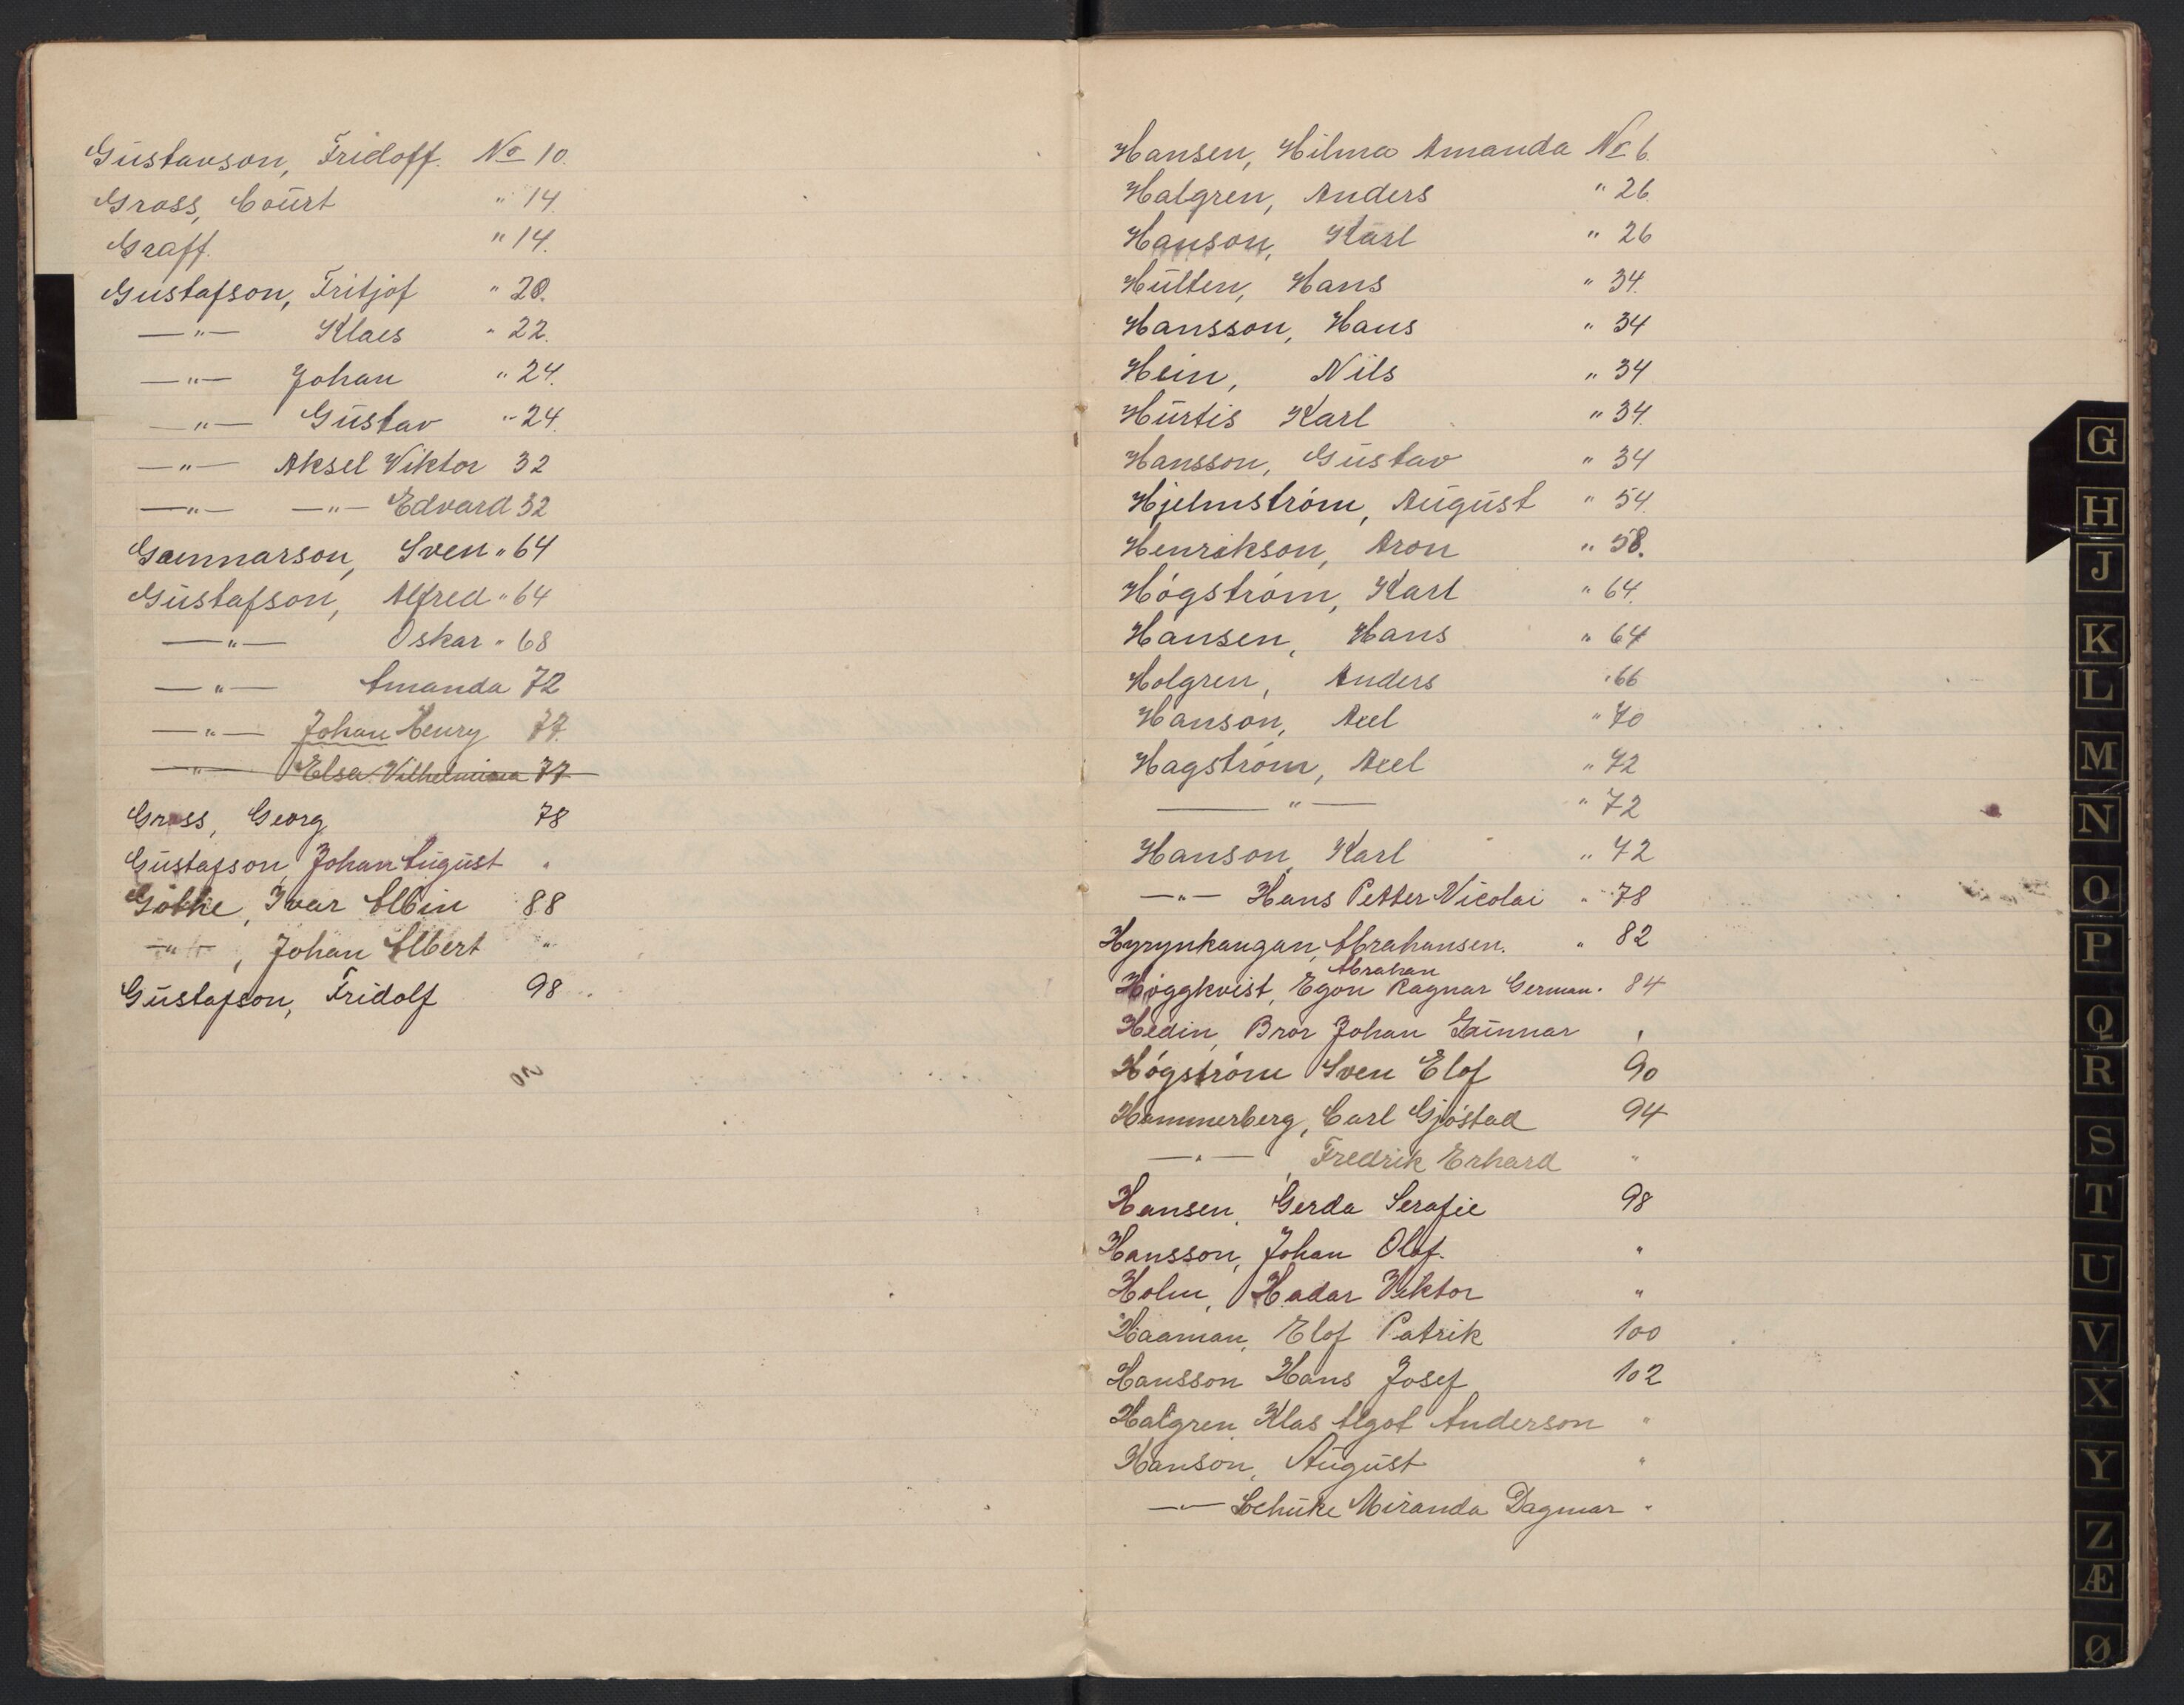 Gustavson, Fridoff. No 10.
Gross, Court " 14.
Graff. " 14.
Gustafson, Fritjof " 20.
—"— Klaes " 22.
—"— Johan " 24.
—"— Gustav " 24.
—"— Aksel Viktor 32
—"— —"— Edvard 32
Gunnarson, Sven " 64
Gustafson, Alfred " 64
—"— Oskar " 68
—"— Amanda 72
—"— Johan Henry 77.
—"— Elsa Vilhelmina 77
Gross, Georg 78
Gustafson, Johan August "
Göthe, Ivar Albin 88
—"—, Johan Albert "
Gustafson, Fridolf 98
20
Hansen, Hilma Amanda No 6.
Halgren, Anders " 26.
Hanson, Karl " 26
Hulten, Hans " 34.
Hansson, Hans " 34
Hein, Nils " 34
Hurtis Karl " 34.
Hansson, Gustav " 34
Hjelmström, August " 54.
Henrikson, Aron " 58.
Högström, Karl " 64.
Hansen, Hans " 64
Holgren, Anders " 66
Hanson, Axel " 70
Hagström, Axel " 72
—"— " 72
Hanson, Karl " 72
—"— Hans Petter Nicolai " 78
Hyrynkangan, Abrahansen. " 82
Abrahan
Höggkvist, Egon Ragnar German. 84
Hedin, Bror Johan Gunnar "
Högström Sven Elof 90
Hammerberg, Carl Gjöstad 94
—"—, Fredrik Erhard "
Hansen, Gerda Serafie 98
Hansson, Johan Olof. "
Holm, Hadar Viktor "
Haaman, Elof Patrik 100
Hansson Hans Josef 102
Halgren, Klas Algot Anderson "
Hanson, August "
—"— Miranda Dagmar "
G
H
J
K
L
M
N
O
P
Q
R
S
T
U
V
X
Y
Z
Æ
Ø